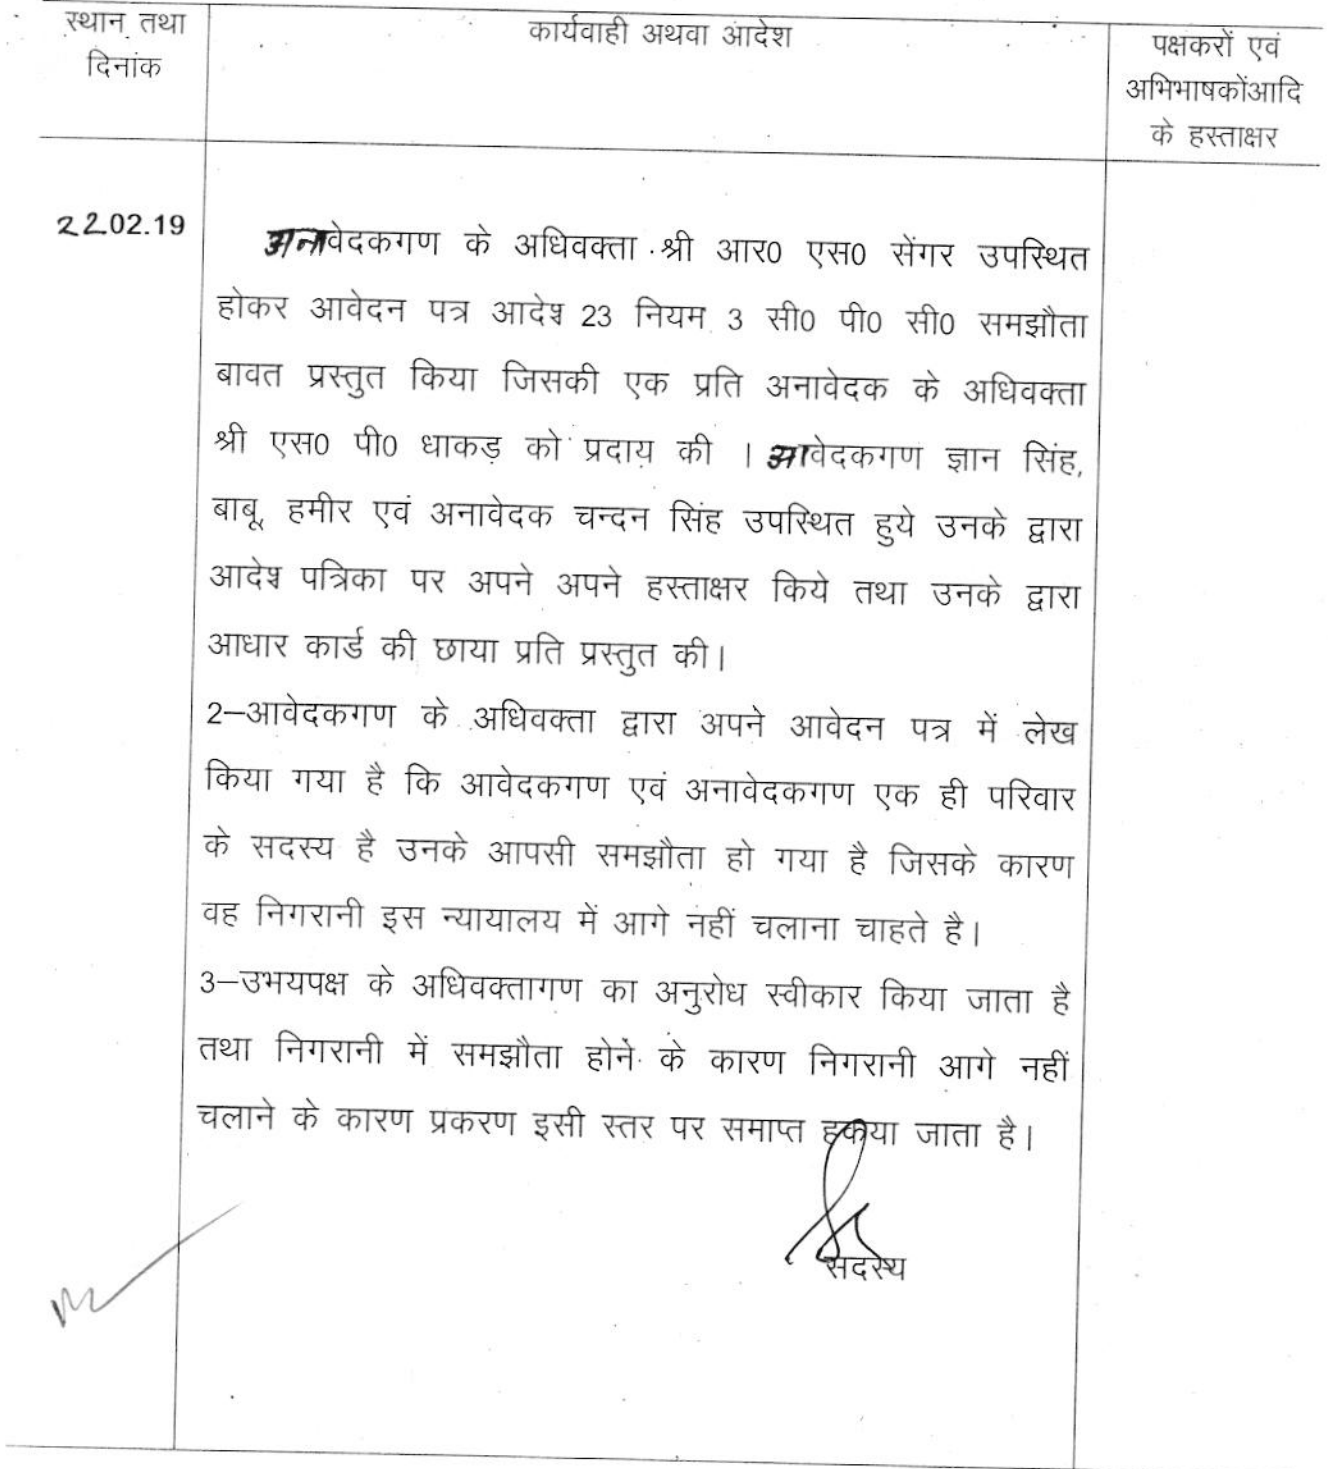 स्थान तथा
दिनांक
कार्यवाही अथवा आदेश
पक्षकरों एवं
अभिभाषकोंआदि
के हस्ताक्षर
22.02.19
अनावेदकगण के अधिवक्ता श्री आर0 एस0 सेंगर उपस्थित
होकर आवेदन पत्र आदेश्व 23 नियम 3 सी0 पी0 सी0 समझौता
बावत प्रस्तुत किया जिसकी एक प्रति अनावेदक के अधिवक्ता
श्री एस0 पी0 धाकड़ को प्रदाय की । आवेदकगण ज्ञान सिंह,
बाबू, हमीर एवं अनावेदक चन्दन सिंह उपस्थित हुये उनके द्वारा
आदेश्व पत्रिका पर अपने अपने हस्ताक्षर किये तथा उनके द्वारा
आधार कार्ड की छाया प्रति प्रस्तुत की।
2–आवेदकगण के अधिवक्ता द्वारा अपने आवेदन पत्र में लेख
किया गया है कि आवेदकगण एवं अनावेदकगण एक ही परिवार
के सदस्य है उनके आपसी समझौता हो गया है जिसके कारण
वह निगरानी इस न्यायालय में आगे नहीं चलाना चाहते है।
3–उभयपक्ष के अधिवक्तागण का अनुरोध स्वीकार किया जाता है
तथा निगरानी में समझौता होने के कारण निगरानी आगे नहीं
चलाने के कारण प्रकरण इसी स्तर पर समाप्त हकया जाता है।
सदस्य